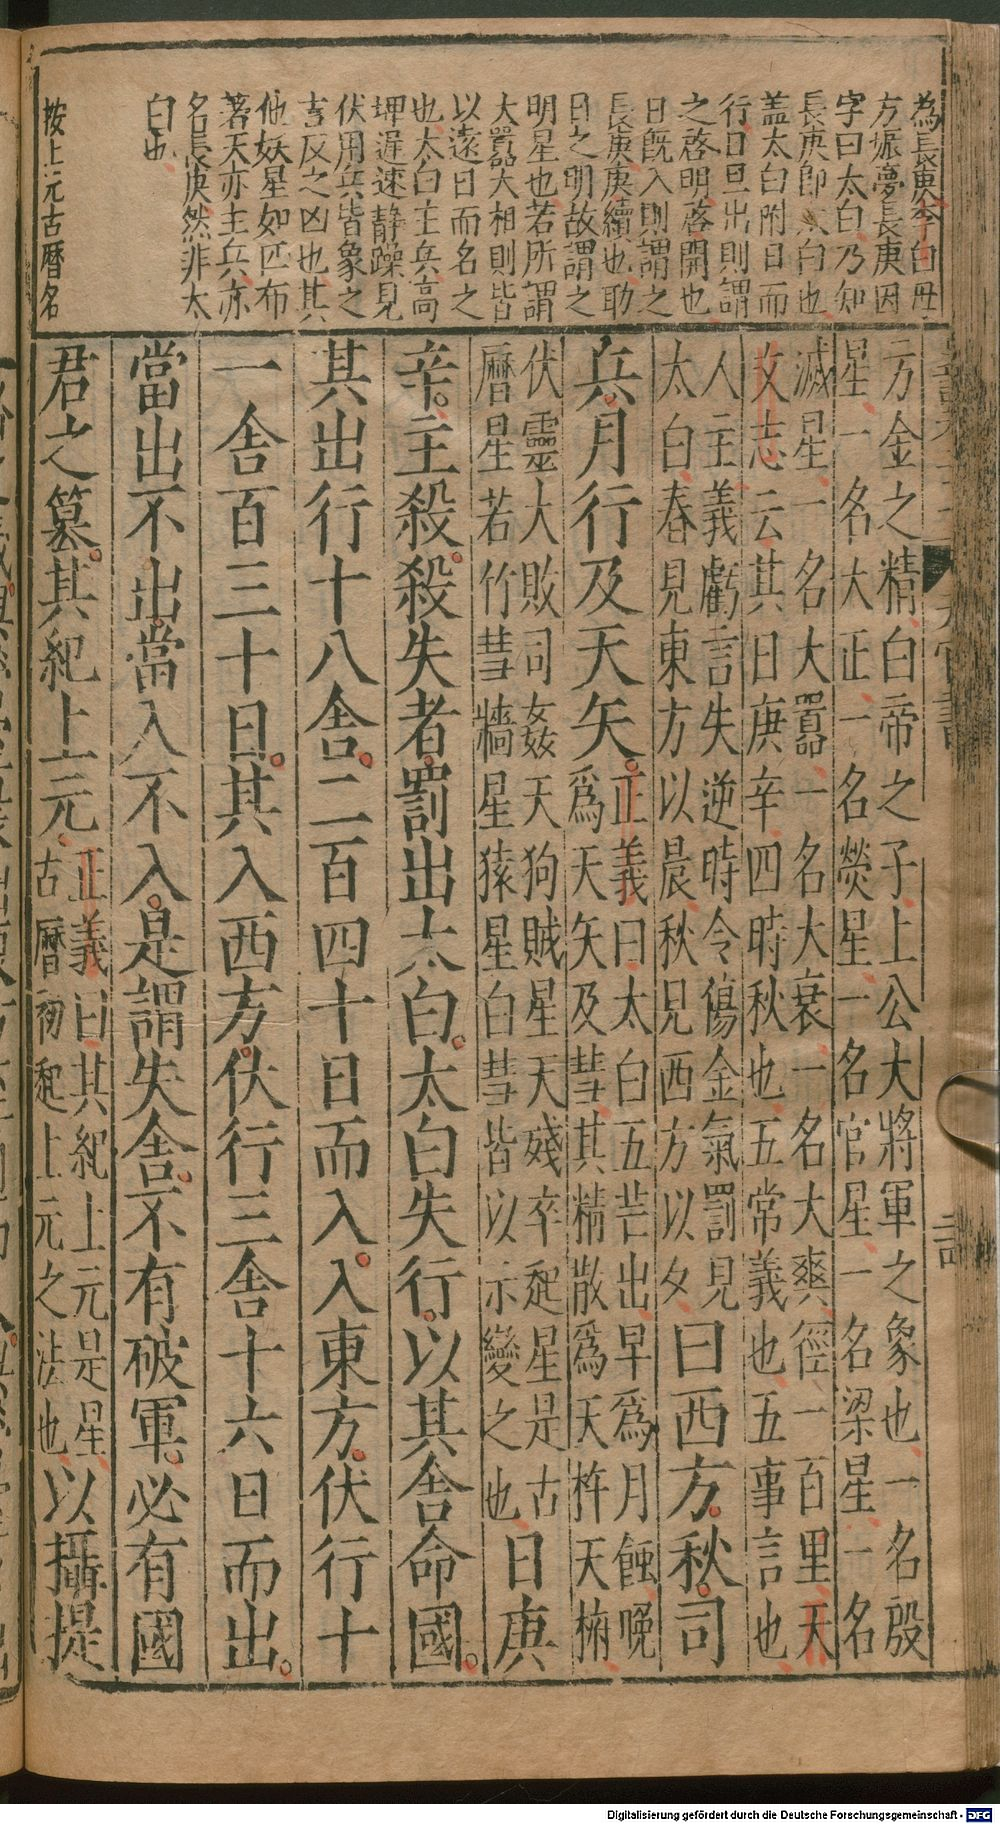 為長庚李白母
方娠夢長庚因
字曰太白乃知
長庚即太白也
盖太白附日而
行日旦出則謂
之啓明啓開也
日既入則謂之
長庚庚續也助
日之明故謂之
明星也若所謂
大囂大相則皆
以遠日而名之
也太白主兵高
埤遲速静躁見
伏用兵皆象之
吉反之凶也其
他妖星如匹布
著天亦主兵亦
名長庚然非太
白也
按上元古曆名
方金之精白帝之子上公大將軍之象也一名殷
星一名大正一名熒星一名官星一名梁星一名
滅星一名大囂一名大衰一名大爽徑一百里天
文志云其日庚辛四時秋也五常義也五事言也
人主義虧言失逆時令傷金氣罰見
太白春見東方以晨秋見西方以夕曰西方秋司
兵月行及天矢正義曰太白五芒出早為月蝕晚
為天矢及彗其精散為天杵天柎
伏靈大敗司姦天狗賊星天殘卒起星是古
曆星若竹彗牆星猿星白彗皆以示變之也日庚
辛主殺殺失者罰出太白太白失行以其舍命國
其出行十八舍二百四十日而入入東方伏行十
一舍百三十日其入西方伏行三舍十六日而出
當出不出當入不入是謂失舍不有破軍必有國
君之篡其紀上元正義曰其紀上元是星
古曆初起上元之法也以攝提
Digitalisierung gefördert durch die Deutsche Forschungsgemeinschaft - DFG